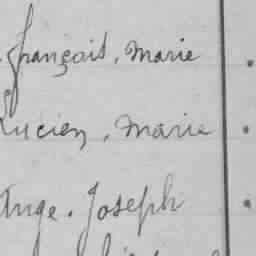 François, Marie
Lucien, Marie
Ange, Joseph